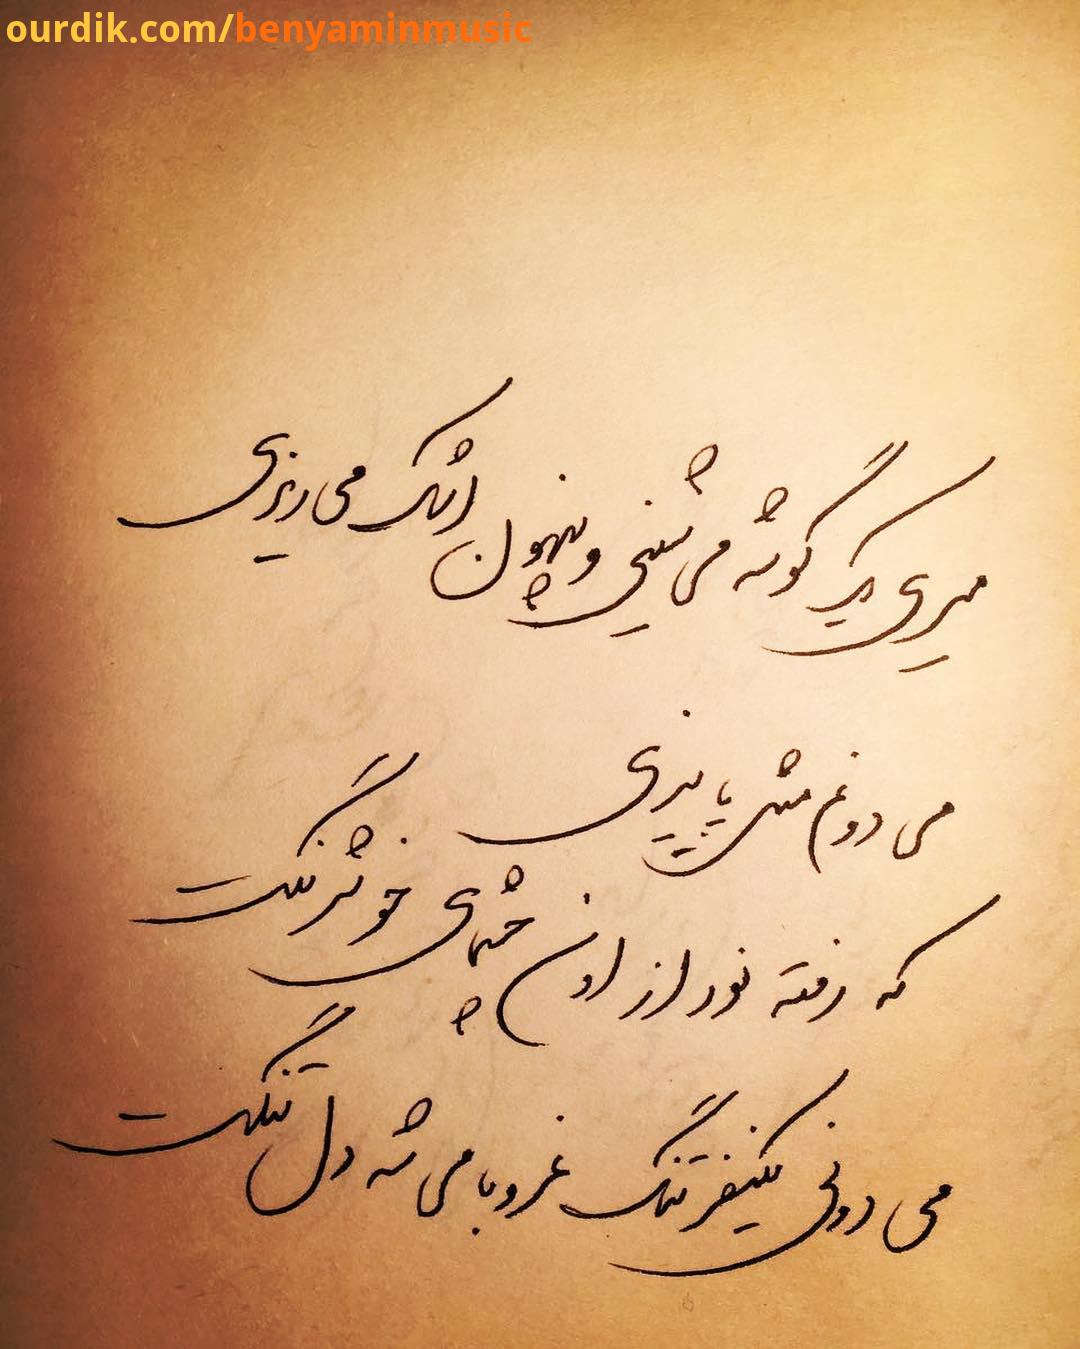 ourdik.com/benyaminmusic
میری یک گوشه می شینی و پنهون اشک می ریزی
می دونم مثل پاییزی
که رفته نور از اون چشمای خوشرنگت
می دونی یکنفر تنگ غروبا می شه دل تنگت